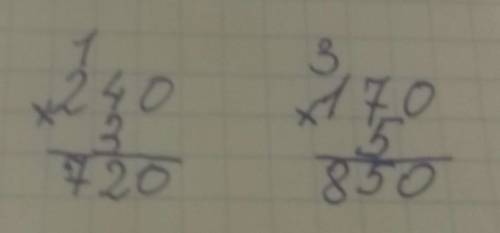 1 3
×240 ×170
3 5
720 850